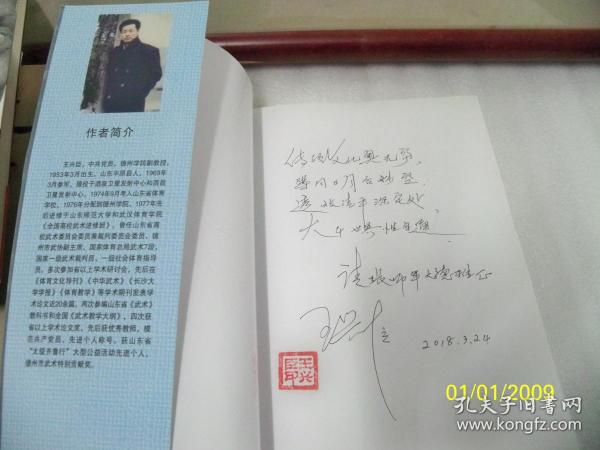 作者简介
王兴臣，中共党员，德州学院副教授。
1953年3月出生，山东平原县人，1969年
3月参军，服役于酒泉卫星发射中心和西昌
卫星发射中心，1974年9月考入山东省体育
学校，1976年分配到德州学院，1977年先
后进修于山东师范大学和武汉体育学院
《全国高校武术进修班》。曾任山东省高
校武术委员会委员兼裁判委员会委员、德
州市武协副主席、国家体育总局武术7段、
国家一级武术裁判员、一级社会体育指导
员。多次参加省以上学术研讨会，先后在
《体育文化导刊》《中华武术》《长沙大
学学报》《体育教学》等学术期刊发表学
术论文近20余篇，两次参编山东省《武术》
教科书和全国《武术教学大纲》，四次获
省以上学术论文奖，先后获优秀教师，模
范共产党员、先进个人称号。获山东省
“太极齐鲁行”大型公益活动先进个人，
德州市武术特别贡献奖。
传统文化奥无穷，
大千世界一性
2018.3.24
王兴
臣印
01/01/2009
孔夫子旧书网
www.kongfz.com